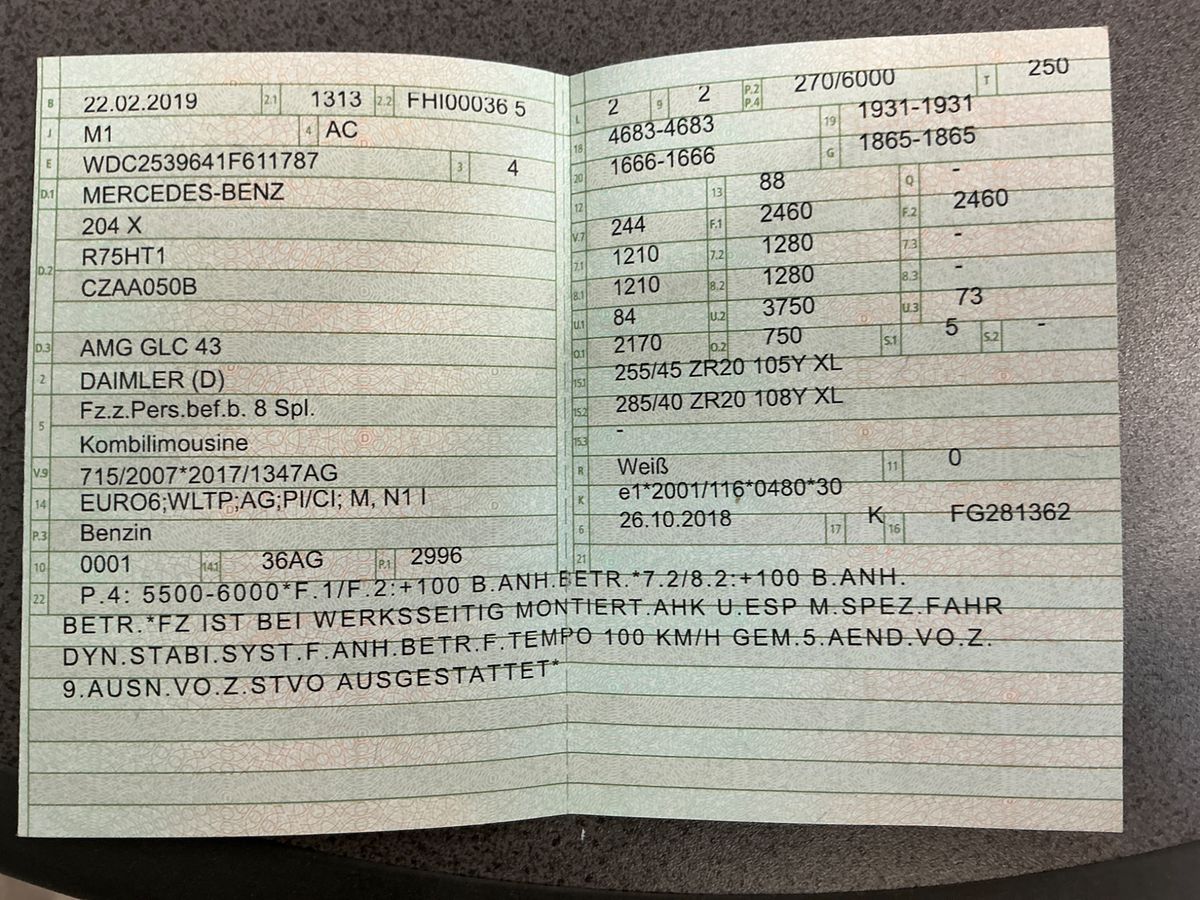 B 22.02.2019 2.1 1313 2.2 FHI00036 5
J M1 4 AC
E WDC2539641F611787 3 4
D.1 MERCEDES-BENZ
204 X
D.2 R75HT1
CZAA050B
D.3 AMG GLC 43
2 DAIMLER (D)
5 Fz.z.Pers.bef.b. 8 Spl.
Kombilimousine
V.9 715/2007*2017/1347AG
14 EURO6;WLTP;AG;PI/CI; M, N1 I
P.3 Benzin
10 0001 14.1 36AG P.1 2996
L 2 9 2 P.2 P.4 270/6000 T 250
18 4683-4683 19 1931-1931
20 1666-1666 G 1865-1865
12 13 88 Q -
V.7 244 F.1 2460 F.2 2460
7.1 1210 7.2 1280 7.3 -
8.1 1210 8.2 1280 8.3 -
U.1 84 U.2 3750 U.3 73
O.1 2170 O.2 750 S.1 5 S.2 -
15.1 255/45 ZR20 105Y XL
15.2 285/40 ZR20 108Y XL
15.3 -
R Weiß 11 0
K e1*2001/116*0480*30
6 26.10.2018 17 K 16 FG281362
21
22 P.4: 5500-6000*F.1/F.2:+100 B.ANH.BETR.*7.2/8.2:+100 B.ANH.
BETR.*FZ IST BEI WERKSSEITIG MONTIERT.AHK U.ESP M.SPEZ.FAHR
DYN.STABI.SYST.F.ANH.BETR.F.TEMPO 100 KM/H GEM.5.AEND.VO.Z.
9.AUSN.VO.Z.STVO AUSGESTATTET*